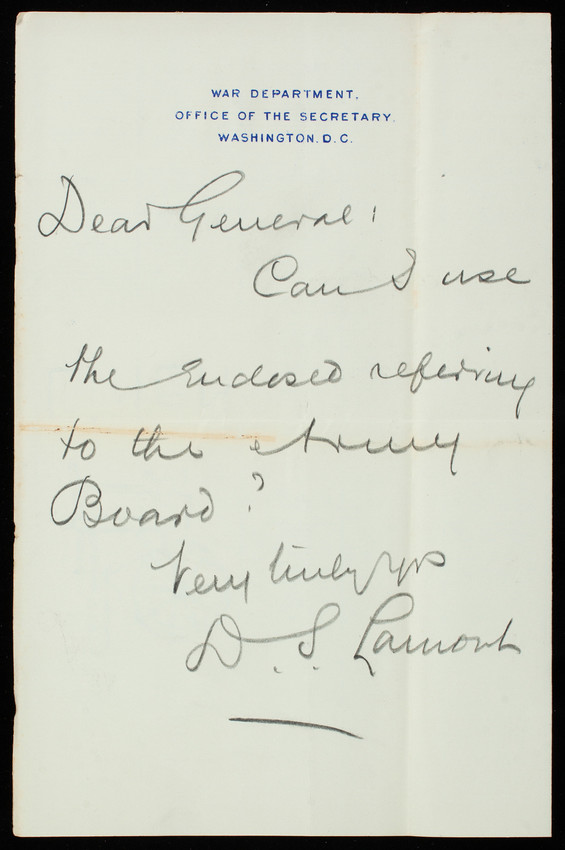 WAR DEPARTMENT,
OFFICE OF THE SECRETARY.
WASHINGTON. D. C.
Dear General:
Can I use
the Enclosed referring
to the Army
Board?
Very truly yrs
D. S. Lamont